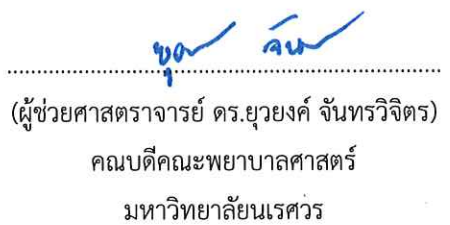 (ผู้ช่วยศาสตราจารย์ ดร.ยุวยงค์ จันทรวิจิตร)
คณบดีคณะพยาบาลศาสตร์
มหาวิทยาลัยนเรศวร